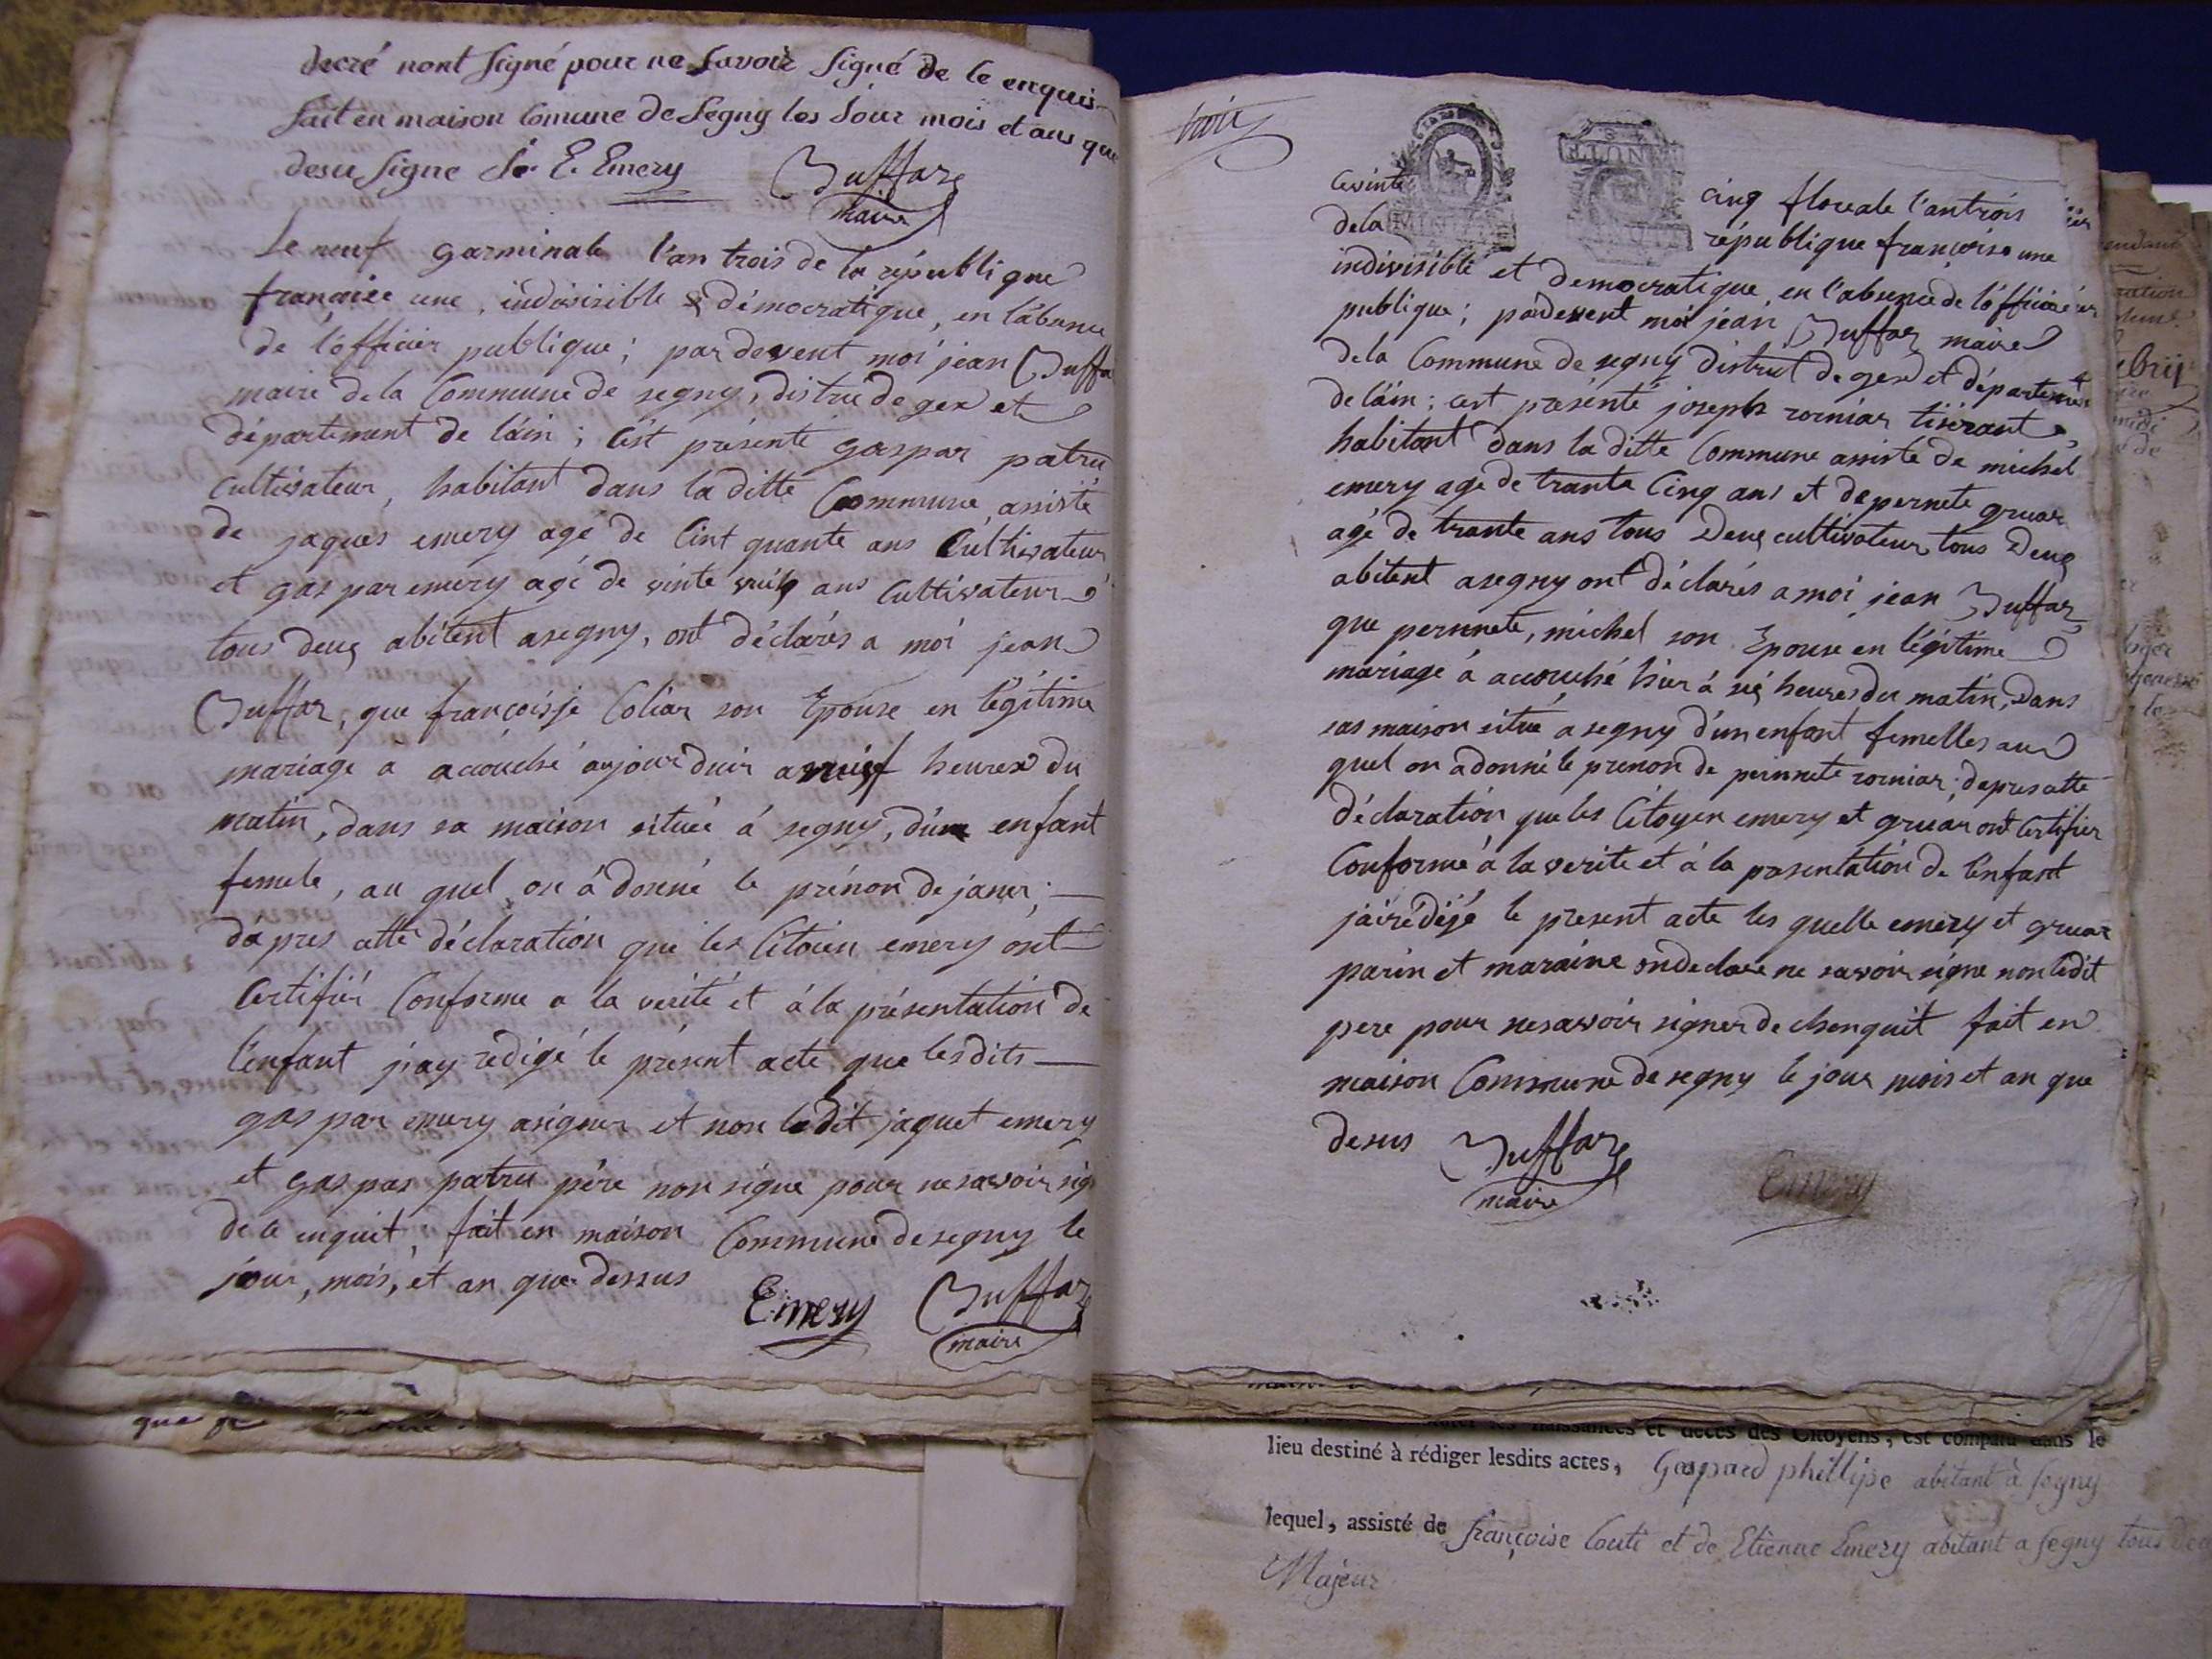 decré nont signé pour ne savoir signé de le enquis
fait en maison Comune de Segny les Jour mois et ans que
desu signe E. Emery Buffaz
maire
Le neuf garminale l'an trois de la république
française une, indivisible & démocratique, en l'absence
de l'officier publique; par devent moi jean Buffa
maire de la Commune de segny, distric de gex et
département de l'ain; c'est présenté gaspar patru
Cultivateur, habitant dans la ditte Commune, assisté
de jaques emery agé de Cint quante ans Cultivateur
et gaspar emery agé de vinte ans Cultivateur
tous deuz abitent a segny, ont déclarés a moi jean
Buffaz, que françoisje Coliar son Epouse en légitime
mariage a acouché aujourduir a neuf heures du
matin, dans sa maison située á segny, d'une enfant
femele, au quel on á donné le prénon de janer;
da pres cette déclaration que les Citoien emery ont
Certifiér Conforme a la verité et á la présentation de
l'enfant j'ay redigé le présent acte que les dits
gaspar emery a signer et non le dit jaquet emery
et gaspar patru pére non signe pour ne savoir sig
de ce enquit, fait en maison Commune de segny le
jour, mois, et an que dessus
Emery Buffaz
maire
trois
MINUTE
Le vinte cinq floreale l'an trois
de la république françoise une
indivisible et democratique, en l'absence de l'officier
publique; pardevent moi jean Buffaz maire
de la Commune de segny distrid de gex et départemen
de l'ain; c'est présenté joseph rorniar tiserant
habitant dans la ditte Commune assisté de michel
emery age de trante Cinq ans et de pernete gruar
agé de trante ans tous Deuz cultivateur tous Deuz
abitent a segny ont déclarés a moi jean Buffaz
que pernnete, michel son Epouse en légitime
mariage á acouché hier á sis heures du matin, Dans
sas maison située a segny d'un enfant femelles au
quel on a donné le prenon de pernnete rorniar; d'apres cette
déclaration que les Citoyen emery et gruar ont Certifier
Conforme á la verite et á la prosentation de l'enfant
j'ai rédijé le present acte les quelle emery et gruar
parin et maraine on declare ne savoir signe non ledit
pere pour ne savoir signer de enquit fait en
maison Commune de segny le jour mois et an que
desus Buffaz
maire
Emery
naissances et décès des Citoyens, est comparu dans le
lieu destiné à rédiger lesdits actes, Gaspard phillipe abitant à Segny
lequel, assisté de françoise Couti et de Etienne Emery abitant a segny tous deu
Majeur